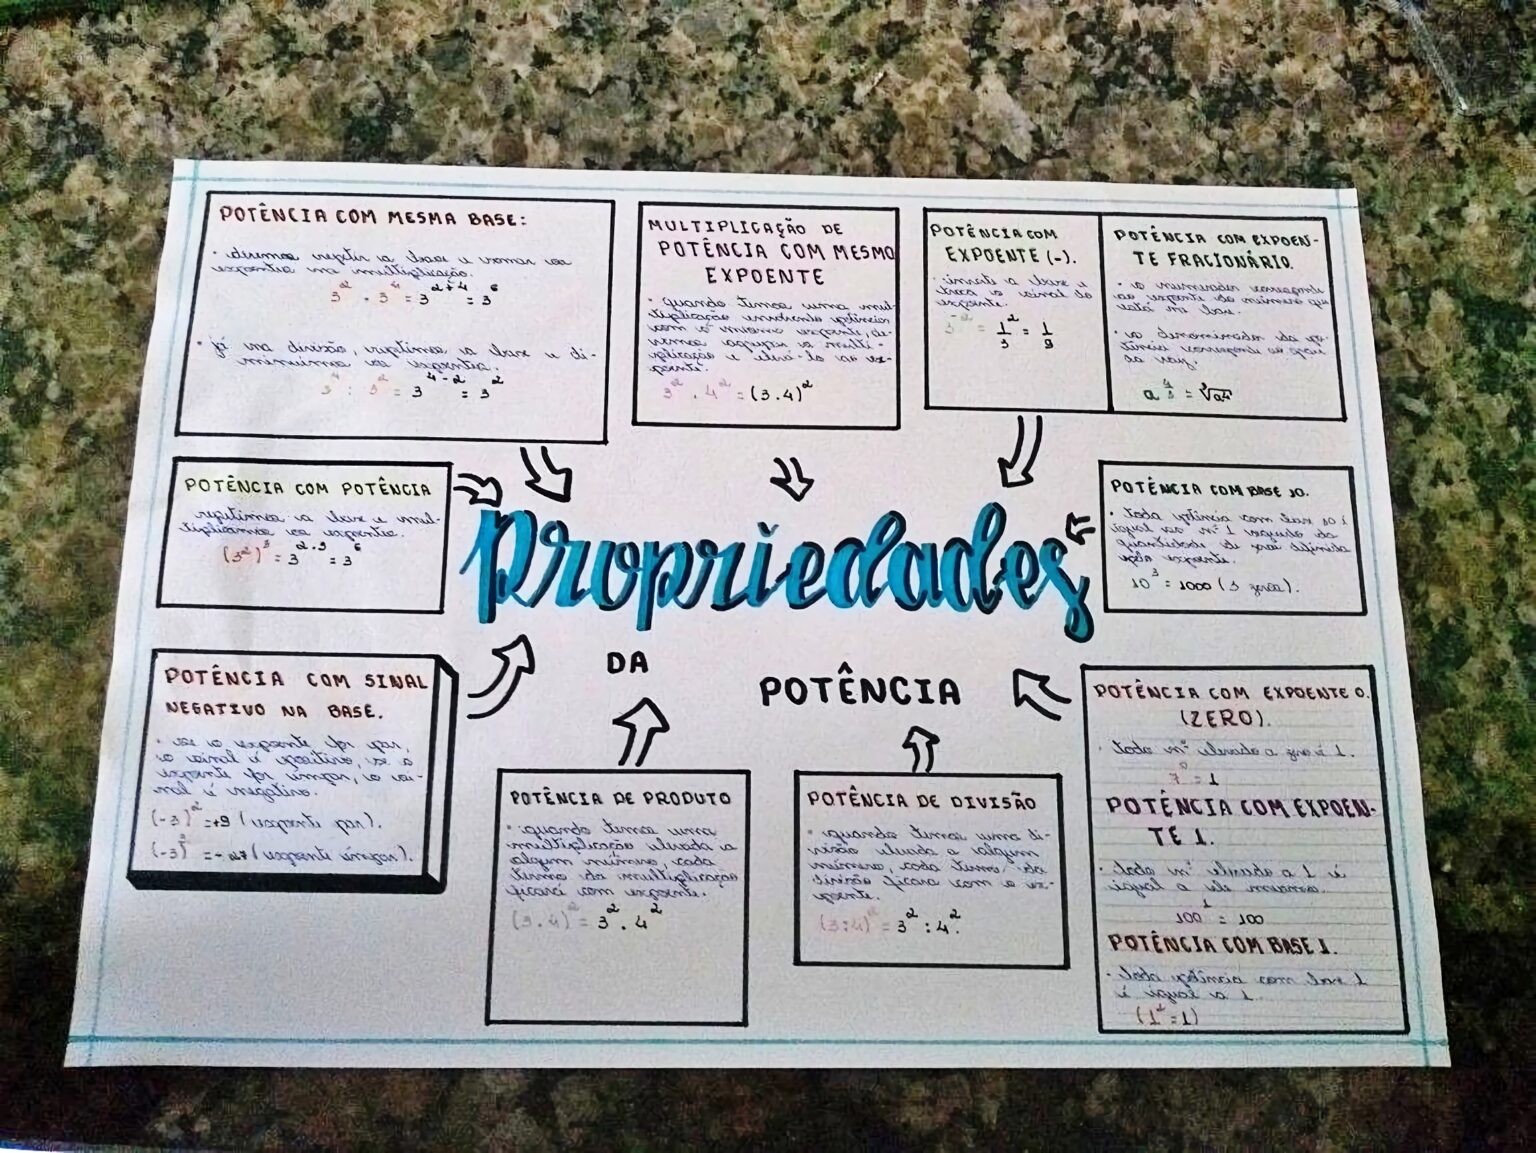 POTÊNCIA COM MESMA BASE:
· devemos repetir a base e somar os
expoentes na multiplicação.
3² · 3⁴ = 3²⁺⁴ = 3⁶
· já na divisão, repetimos a base e di-
minuimos os expoentes.
3⁴ : 3² = 3⁴⁻² = 3²
MULTIPLICAÇÃO DE
POTÊNCIA COM MESMO
EXPOENTE
· quando temos uma mul-
tiplicação envolvendo potências
com o mesmo expoente, de-
vemos agrupar a multi-
plicação e elevá-lo ao ex-
poente.
3² · 4² = (3.4)²
POTÊNCIA COM
EXPOENTE (-).
· inverte a base e
troca o sinal do
expoente.
3⁻² = 1²/3 = 1/9
POTÊNCIA COM EXPOEN-
TE FRACIONÁRIO.
· o numerador corresponde
ao expoente do número que
está na base.
· o denominador da po-
tência corresponde ao grau
da raiz.
a^4/3 = ³√a⁴
POTÊNCIA COM POTÊNCIA
repetimos a base e mul-
tiplicamos os expoentes.
(3²)³ = 3²·³ = 3⁶
Propriedades
DA
POTÊNCIA
POTÊNCIA COM BASE 10.
· toda potência com base 10 é
igual ao nº 1 seguido da
quantidade de zeros definida
pelo expoente.
10³ = 1000 (3 zeros).
POTÊNCIA COM SINAL
NEGATIVO NA BASE.
· se o expoente for par,
o sinal é positivo, se o
expoente for ímpar, o si-
nal é negativo.
(-3)² = +9 (expoente par).
(-3)³ = -27 (expoente ímpar).
POTÊNCIA DE PRODUTO
· quando temos uma
multiplicação elevada a
algum número, cada
termo da multiplicação
ficará com expoente.
(3.4)² = 3² . 4²
POTÊNCIA DE DIVISÃO
· quando temos uma di-
visão elevada a algum
número, cada termo da
divisão ficara com o ex-
poente.
(3:4)² = 3² : 4².
POTÊNCIA COM EXPOENTE 0.
(ZERO).
· todo nº elevado a zero é 1.
7⁰ = 1
POTÊNCIA COM EXPOEN-
TE 1.
· todo nº elevado a 1 é
igual a ele mesmo.
100¹ = 100
POTÊNCIA COM BASE 1.
· toda potência com base 1
é igual a 1.
(1² = 1)